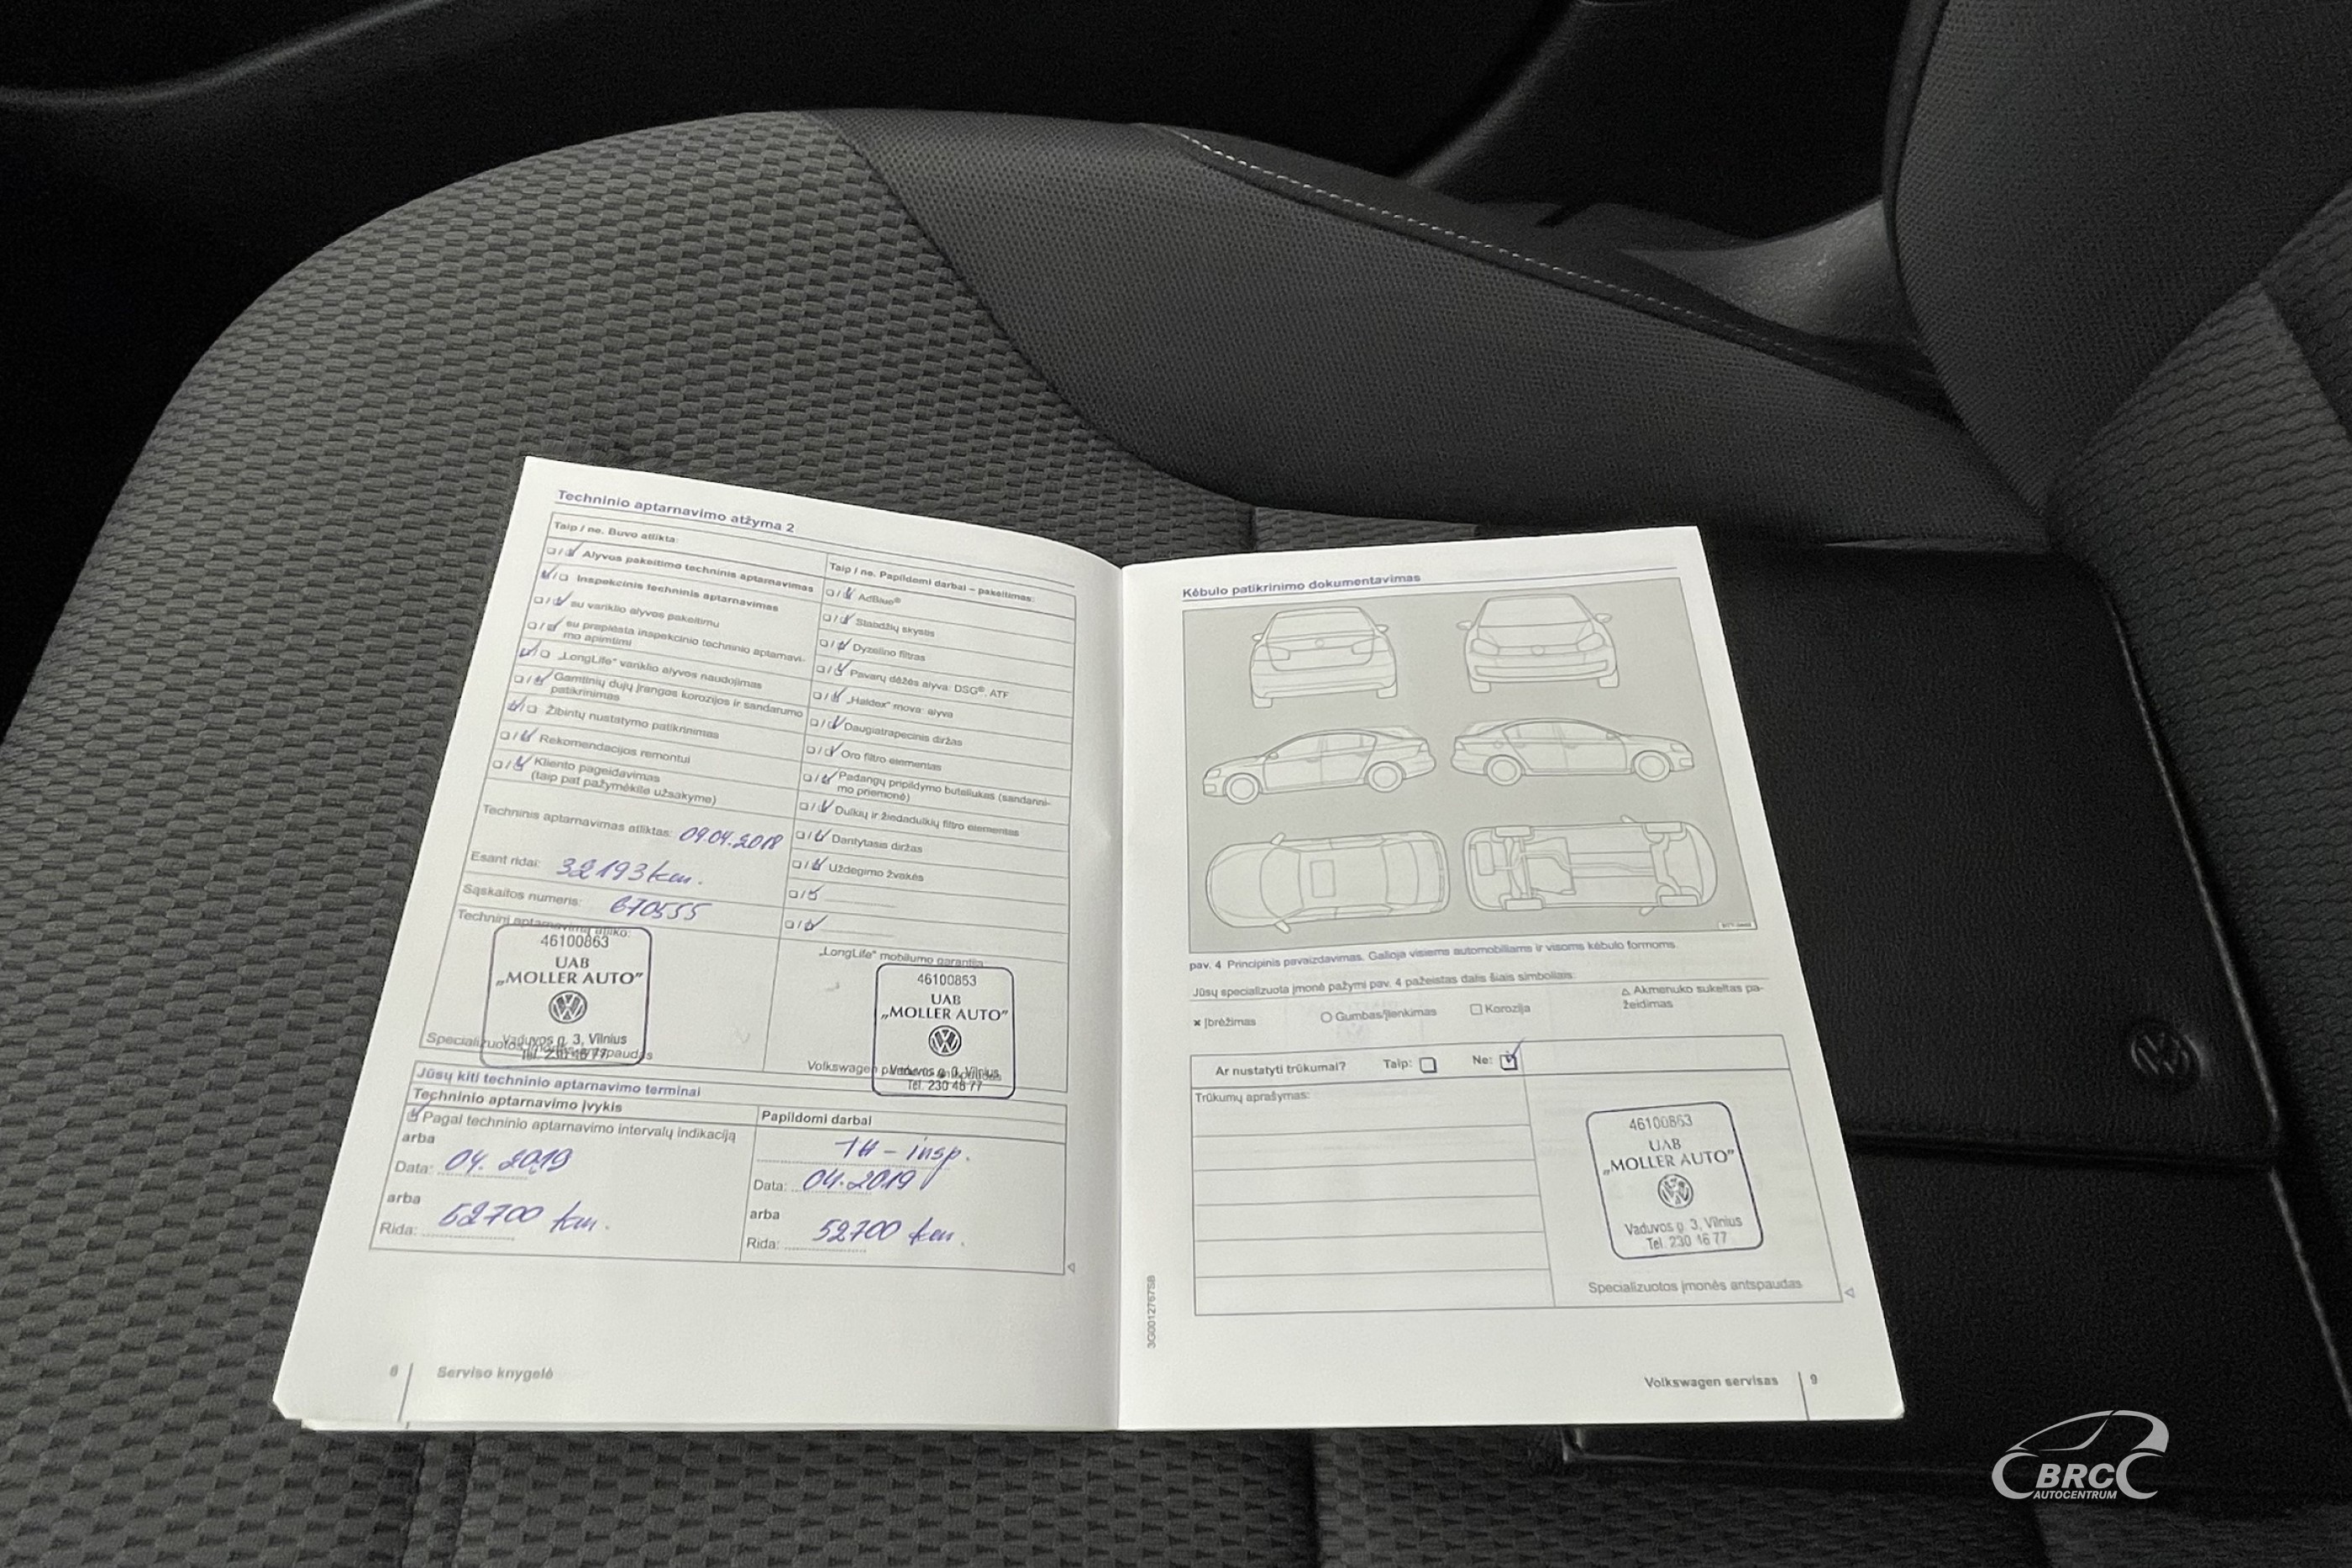 Techninio aptarnavimo atžyma 2
Taip / ne. Buvo atlikta:
Alyvos pakeitimo techninis aptarnavimas
Inspekcinis techninis aptarnavimas
su variklio alyvos pakeitimu
su praplėsta inspekcinio techninio aptarnavi-
mo apimtimi
„LongLife" variklio alyvos naudojimas
Gamtinių dujų įrangos korozijos ir sandarumo
patikrinimas
Žibintų nustatymo patikrinimas
Rekomendacijos remontui
Kliento pageidavimas
(taip pat pažymėkite užsakyme)
Techninis aptarnavimas atliktas: 09.04.2018
Esant ridai: 32193 km.
Sąskaitos numeris: 670555
Techninį aptarnavimą atliko:
46100863
UAB
„MOLLER AUTO"
Vaduvos g. 3, Vilnius
Tel. 230 46 77
Specializuotos įmonės antspaudas
Taip / ne. Papildomi darbai – pakeitimas:
AdBlue®
Stabdžių skystis
Dyzelino filtras
Pavarų dėžės alyva: DSG®, ATF
„Haldex" mova: alyva
Daugiatrapecinis diržas
Oro filtro elementas
Padangų pripildymo buteliukas (sandarini-
mo priemonė)
Dulkių ir žiedadulkių filtro elementas
Dantytasis diržas
Uždegimo žvakės
„LongLife" mobilumo garantija
46100863
UAB
„MOLLER AUTO"
Vaduvos g. 3, Vilnius
Tel. 230 46 77
Volkswagen
Jūsų kiti techninio aptarnavimo terminai
Techninio aptarnavimo įvykis
Pagal techninio aptarnavimo intervalų indikaciją
arba
Data: 04.2019
arba
Rida: 52700 km.
Papildomi darbai
TA – insp.
Data: 04.2019
arba
Rida: 52700 km.
8 Serviso knygelė
Kėbulo patikrinimo dokumentavimas
pav. 4 Principinis pavaizdavimas. Galioja visiems automobiliams ir visoms kėbulo formoms.
Jūsų specializuota įmonė pažymi pav. 4 pažeistas dalis šiais simboliais:
Įbrėžimas
Gumbas/įlenkimas
Korozija
Akmenuko sukeltas pa-
žeidimas
Ar nustatyti trūkumai? Taip: Ne:
Trūkumų aprašymas:
46100863
UAB
„MOLLER AUTO"
Vaduvos g. 3, Vilnius
Tel. 230 46 77
Specializuotos įmonės antspaudas
3G0012767SB
Volkswagen servisas 9
BRC
AUTOCENTRUM